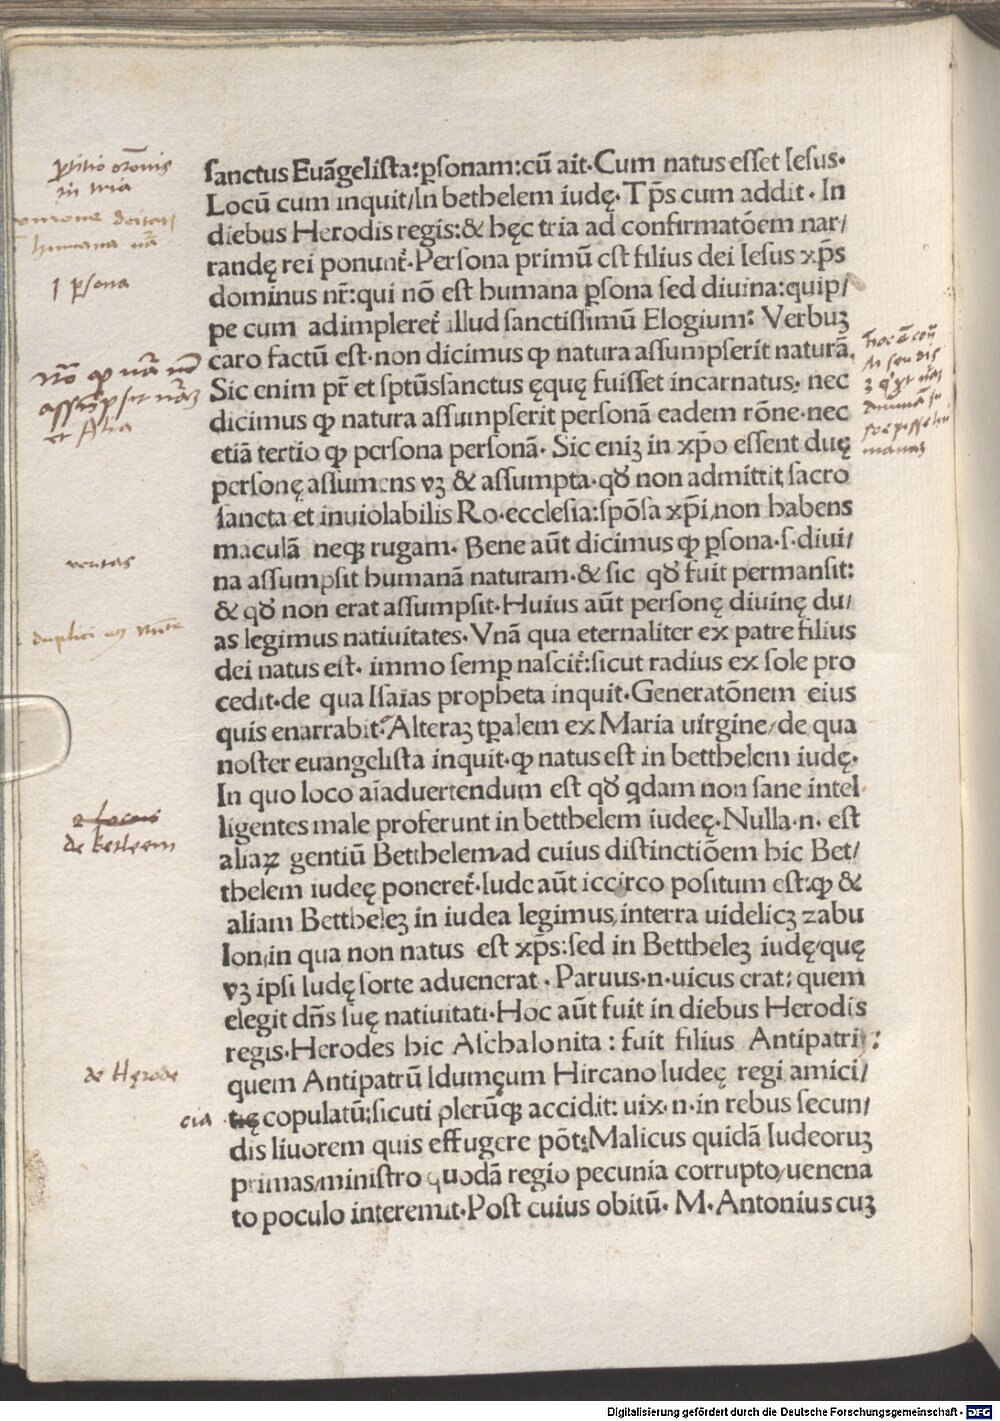 sanctus Euãgelista:ꝑsonam:cũ ait·Cum natus esset Iesus·
Locũ cum inquit/In bethelem iudę·Tp̃s cum addit·In
diebus Herodis regis:& hęc tria ad confirmatõem nar/
randę rei ponunt᷑·Persona primũ est filius dei Iesus xp̃s
dominus nr̃:qui nõ est humana ꝑsona sed diuina:quip/
pe cum adimpleret᷑ illud sanctissimũ Elogium: Verbuꝫ
caro factũ est·non dicimus ꝙ natura assumpserit naturã.
Sic enim pr̃ et sptũssanctus ęquę fuisset incarnatus· nec
dicimus ꝙ natura assumpserit personã eadem rõne·nec
etiã tertio ꝙ persona personã· Sic eniꝫ in xp̃o essent duę
personę assumens vꝫ & assumpta·qđ non admittit sacro
sancta et inuiolabilis Ro·ecclesia:spõsa xp̃i non habens
maculã neqꝫ rugam· Bene aũt dicimus ꝙ ꝑsona·s·diui/
na assumpsit humanã naturam·& sic qđ fuit permansit:
& qđ non erat assumpsit·Huius aũt personę diuinę du/
as legimus natiuitates·Vnã qua eternaliter ex patre filius
dei natus est· immo semꝑ nascit᷑:sicut radius ex sole pro
cedit·de qua Isaias propheta inquit·Generatõnem eius
quis enarrabit·Alteraꝫ tꝑalem ex Maria uirgine/de qua
noster euangelista inquit·ꝙ natus est in betthelem iudę·
In quo loco aĩaduertendum est qđ q̃dam non sane intel-
ligentes male proferunt in betthelem iudeę·Nulla·n· est
aliaꝝ gentiũ Betthelem/ad cuius distinctiõem hic Bet/
thelem iudeę poneret᷑·Iude aũt iccirco positum est:ꝙ &
aliam Bettheleꝫ in iudea legimus/interra uidelicꝫ zabu
lon/in qua non natus est xp̃s:sed in Bettheleꝫ iudę/quę
vꝫ ipsi Iudę sorte aduenerat·Paruus·n·uicus erat: quem
elegit dñs suę natiuitati·Hoc aũt fuit in diebus Herodis
regis·Herodes hic Aschalonita: fuit filius Antipatri:
quem Antipatrũ Idumęum Hircano Iudeę regi amici/
tię copulatũ:sicuti ꝑlerũqꝫ accidit: uix·n·in rebus secun/
dis liuorem quis effugere põt:Malicus quidã Iudeoruꝫ
primas/ministro quodã regio pecunia corrupto/uenena
to poculo interemit·Post cuius obitũ· M·Antonius cuꝫ
ꝑtitio orõnis
in tria
humana
1 ꝑsona
veritas
de betleem
de Herode
cia
Digitalisierung gefördert durch die Deutsche Forschungsgemeinschaft - DFG